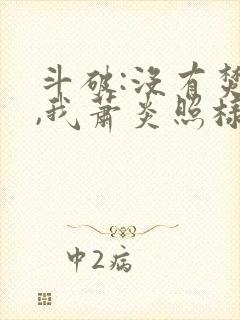 斗破:没有焚
,我萧炎照样
中2病